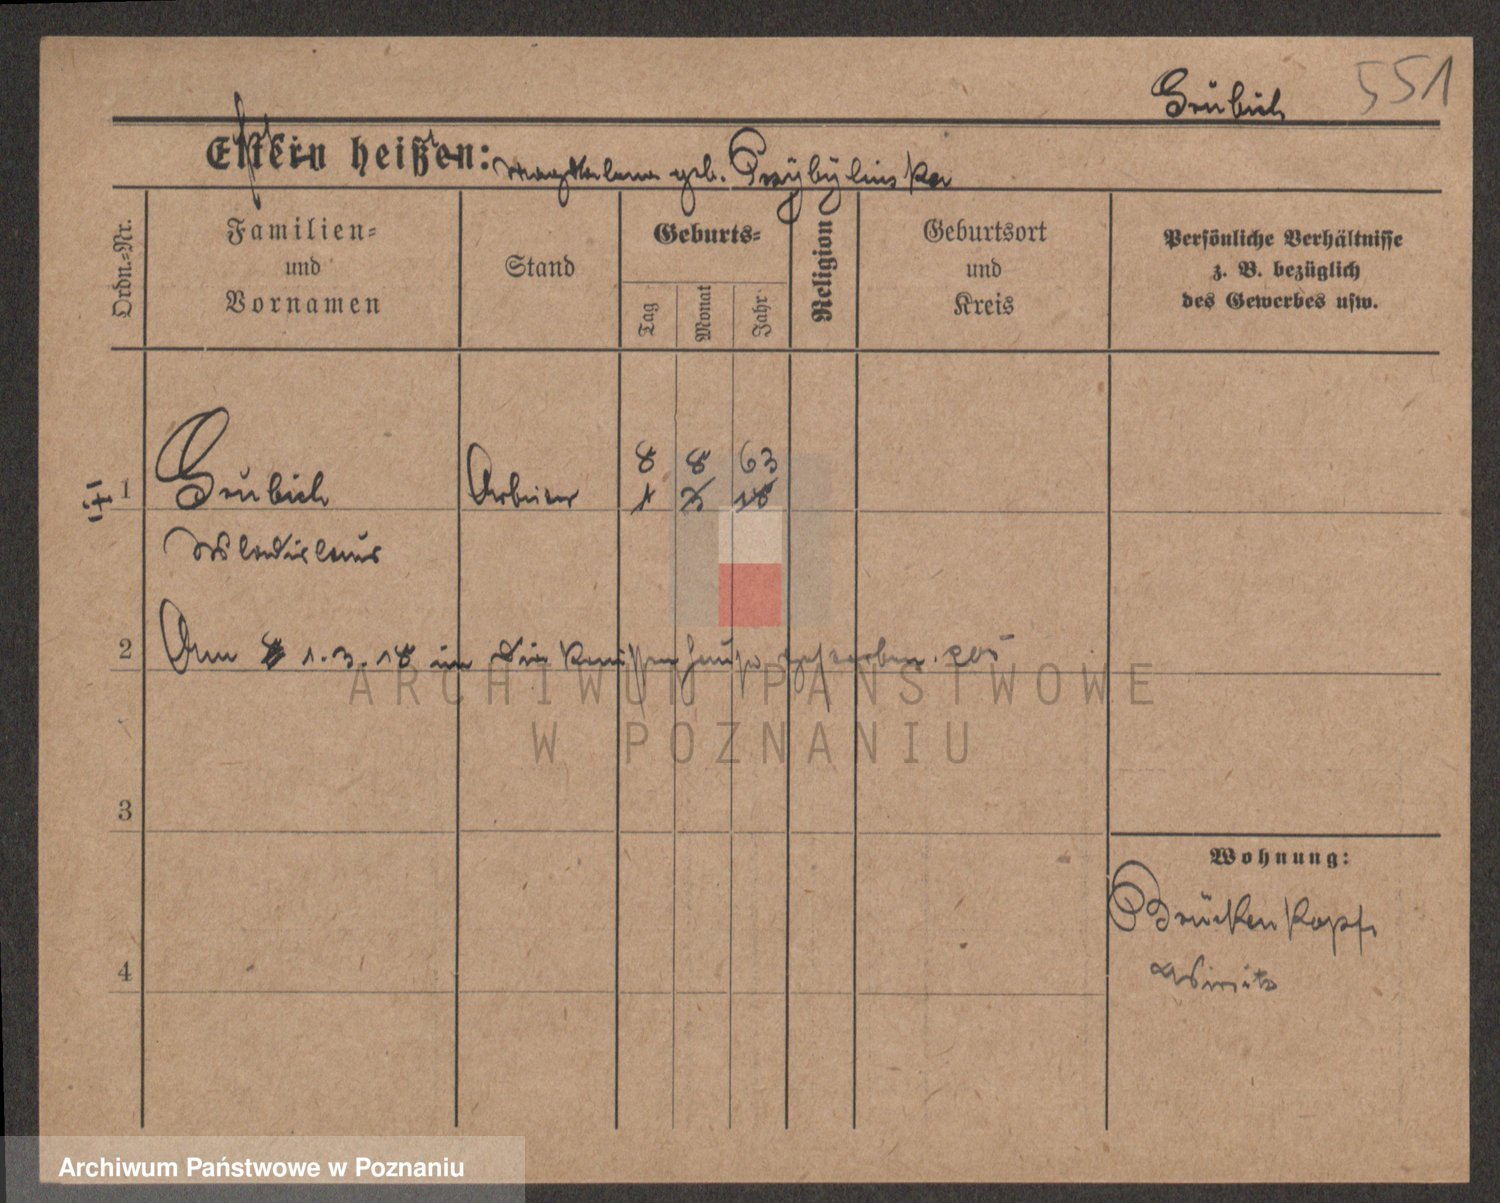 Grubich 551
Eltern heißen: Magdalena geb. Przybylinska
Ordn.-Nr.
Familien-
und
Vornamen
Stand
Geburts-
Tag
Monat
Jahr
Religion
Geburtsort
und
Kreis
Persönliche Verhältnisse
z. B. bezüglich
des Gewerbes usw.
8 8 63
1 Grubich Arbeiter 1 3 18
Wladislaus
2 Am 1.3.18 im Diakonissenhause gestorben.
ARCHIWUM PAŃSTWOWE
W POZNANIU
3
Wohnung:
Brückenkopf
4
Archiwum Państwowe w Poznaniu